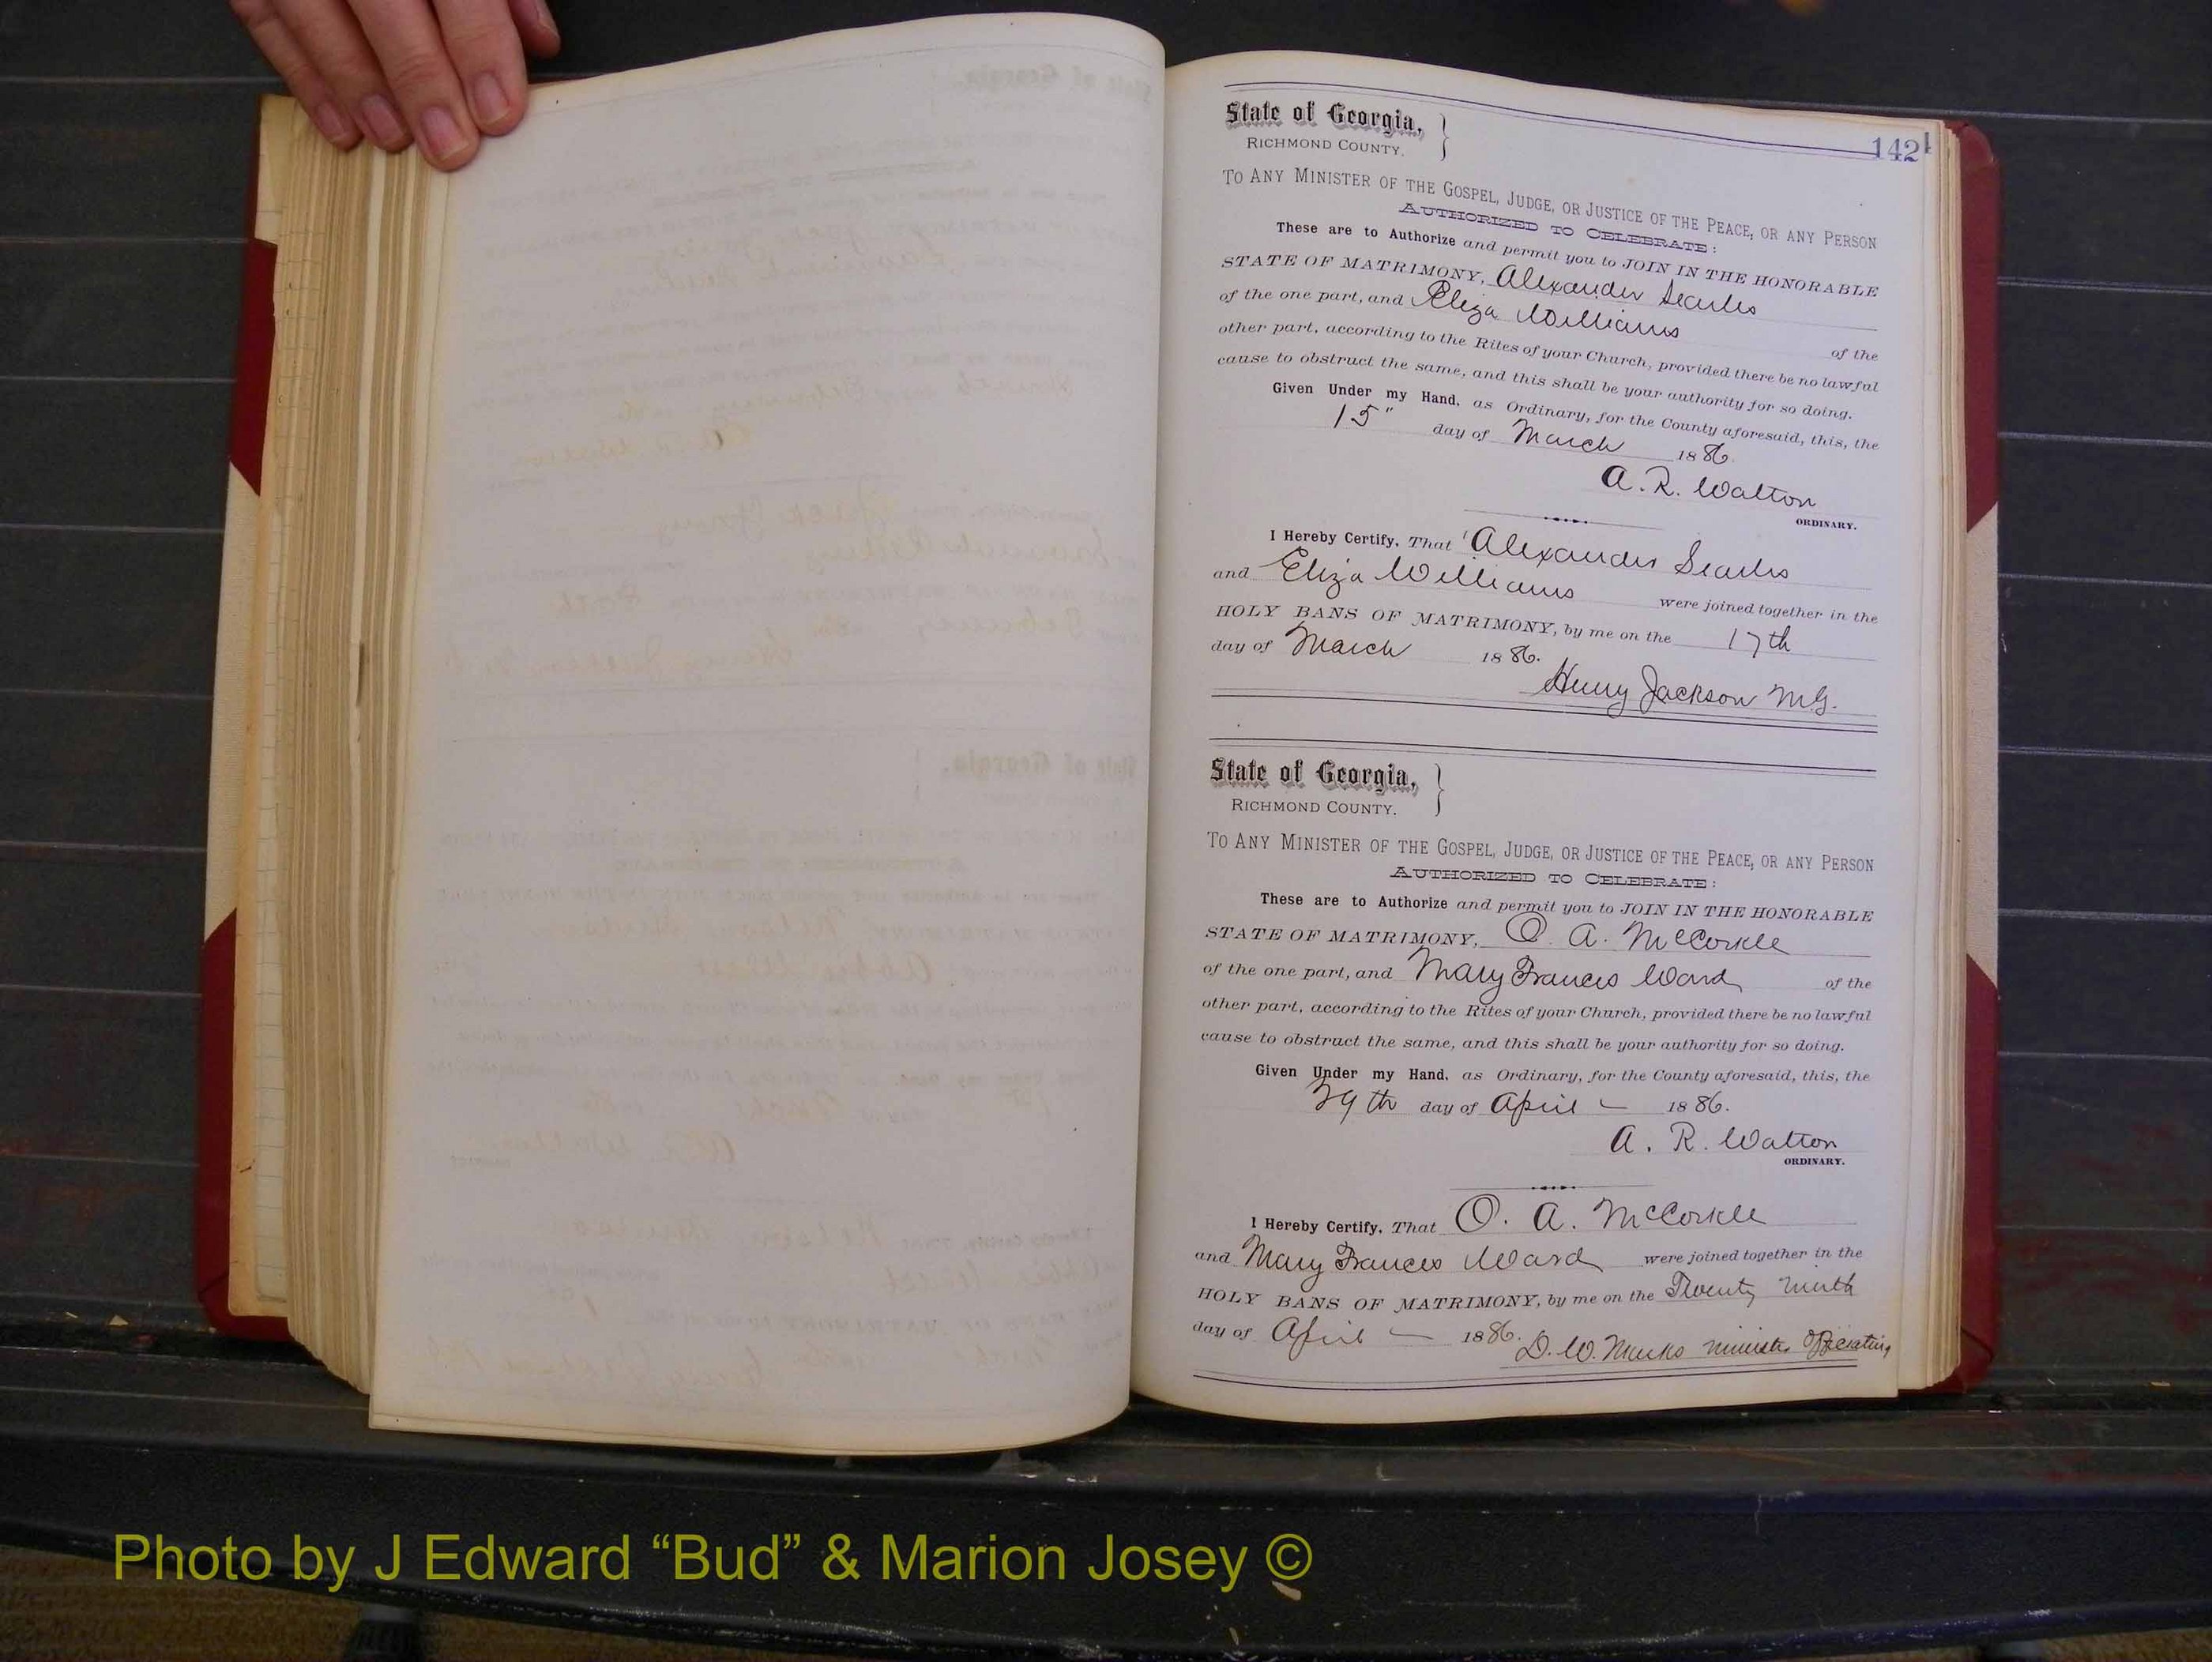 142
State of Georgia,
RICHMOND COUNTY.
TO ANY MINISTER OF THE GOSPEL, JUDGE, OR JUSTICE OF THE PEACE, OR ANY PERSON
AUTHORIZED TO CELEBRATE:
These are to Authorize and permit you to JOIN IN THE HONORABLE
STATE OF MATRIMONY, Alexander Searles
of the one part, and Eliza Williams of the
other part, according to the Rites of your Church, provided there be no lawful
cause to obstruct the same, and this shall be your authority for so doing.
Given Under my Hand, as Ordinary, for the County aforesaid, this, the
15" day of March 1886.
A. R. Walton
ORDINARY.
I Hereby Certify, That Alexander Searles
and Eliza Williams were joined together in the
HOLY BANS OF MATRIMONY, by me on the 17th
day of March 1886.
Henry Jackson M.G.
State of Georgia,
RICHMOND COUNTY.
TO ANY MINISTER OF THE GOSPEL, JUDGE, OR JUSTICE OF THE PEACE, OR ANY PERSON
AUTHORIZED TO CELEBRATE:
These are to Authorize and permit you to JOIN IN THE HONORABLE
STATE OF MATRIMONY, O. A. McCorkle
of the one part, and Mary Frances Ward of the
other part, according to the Rites of your Church, provided there be no lawful
cause to obstruct the same, and this shall be your authority for so doing.
Given Under my Hand, as Ordinary, for the County aforesaid, this, the
29th day of April 1886.
A. R. Walton
ORDINARY.
I Hereby Certify, That O. A. McCorkle
and Mary Frances Ward were joined together in the
HOLY BANS OF MATRIMONY, by me on the Twenty ninth
day of April 1886.
D. W. minister
Photo by J Edward “Bud” & Marion Josey ©